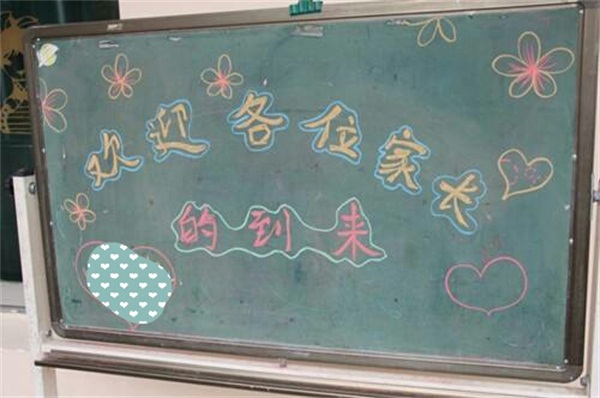 欢迎各位家长
的到来